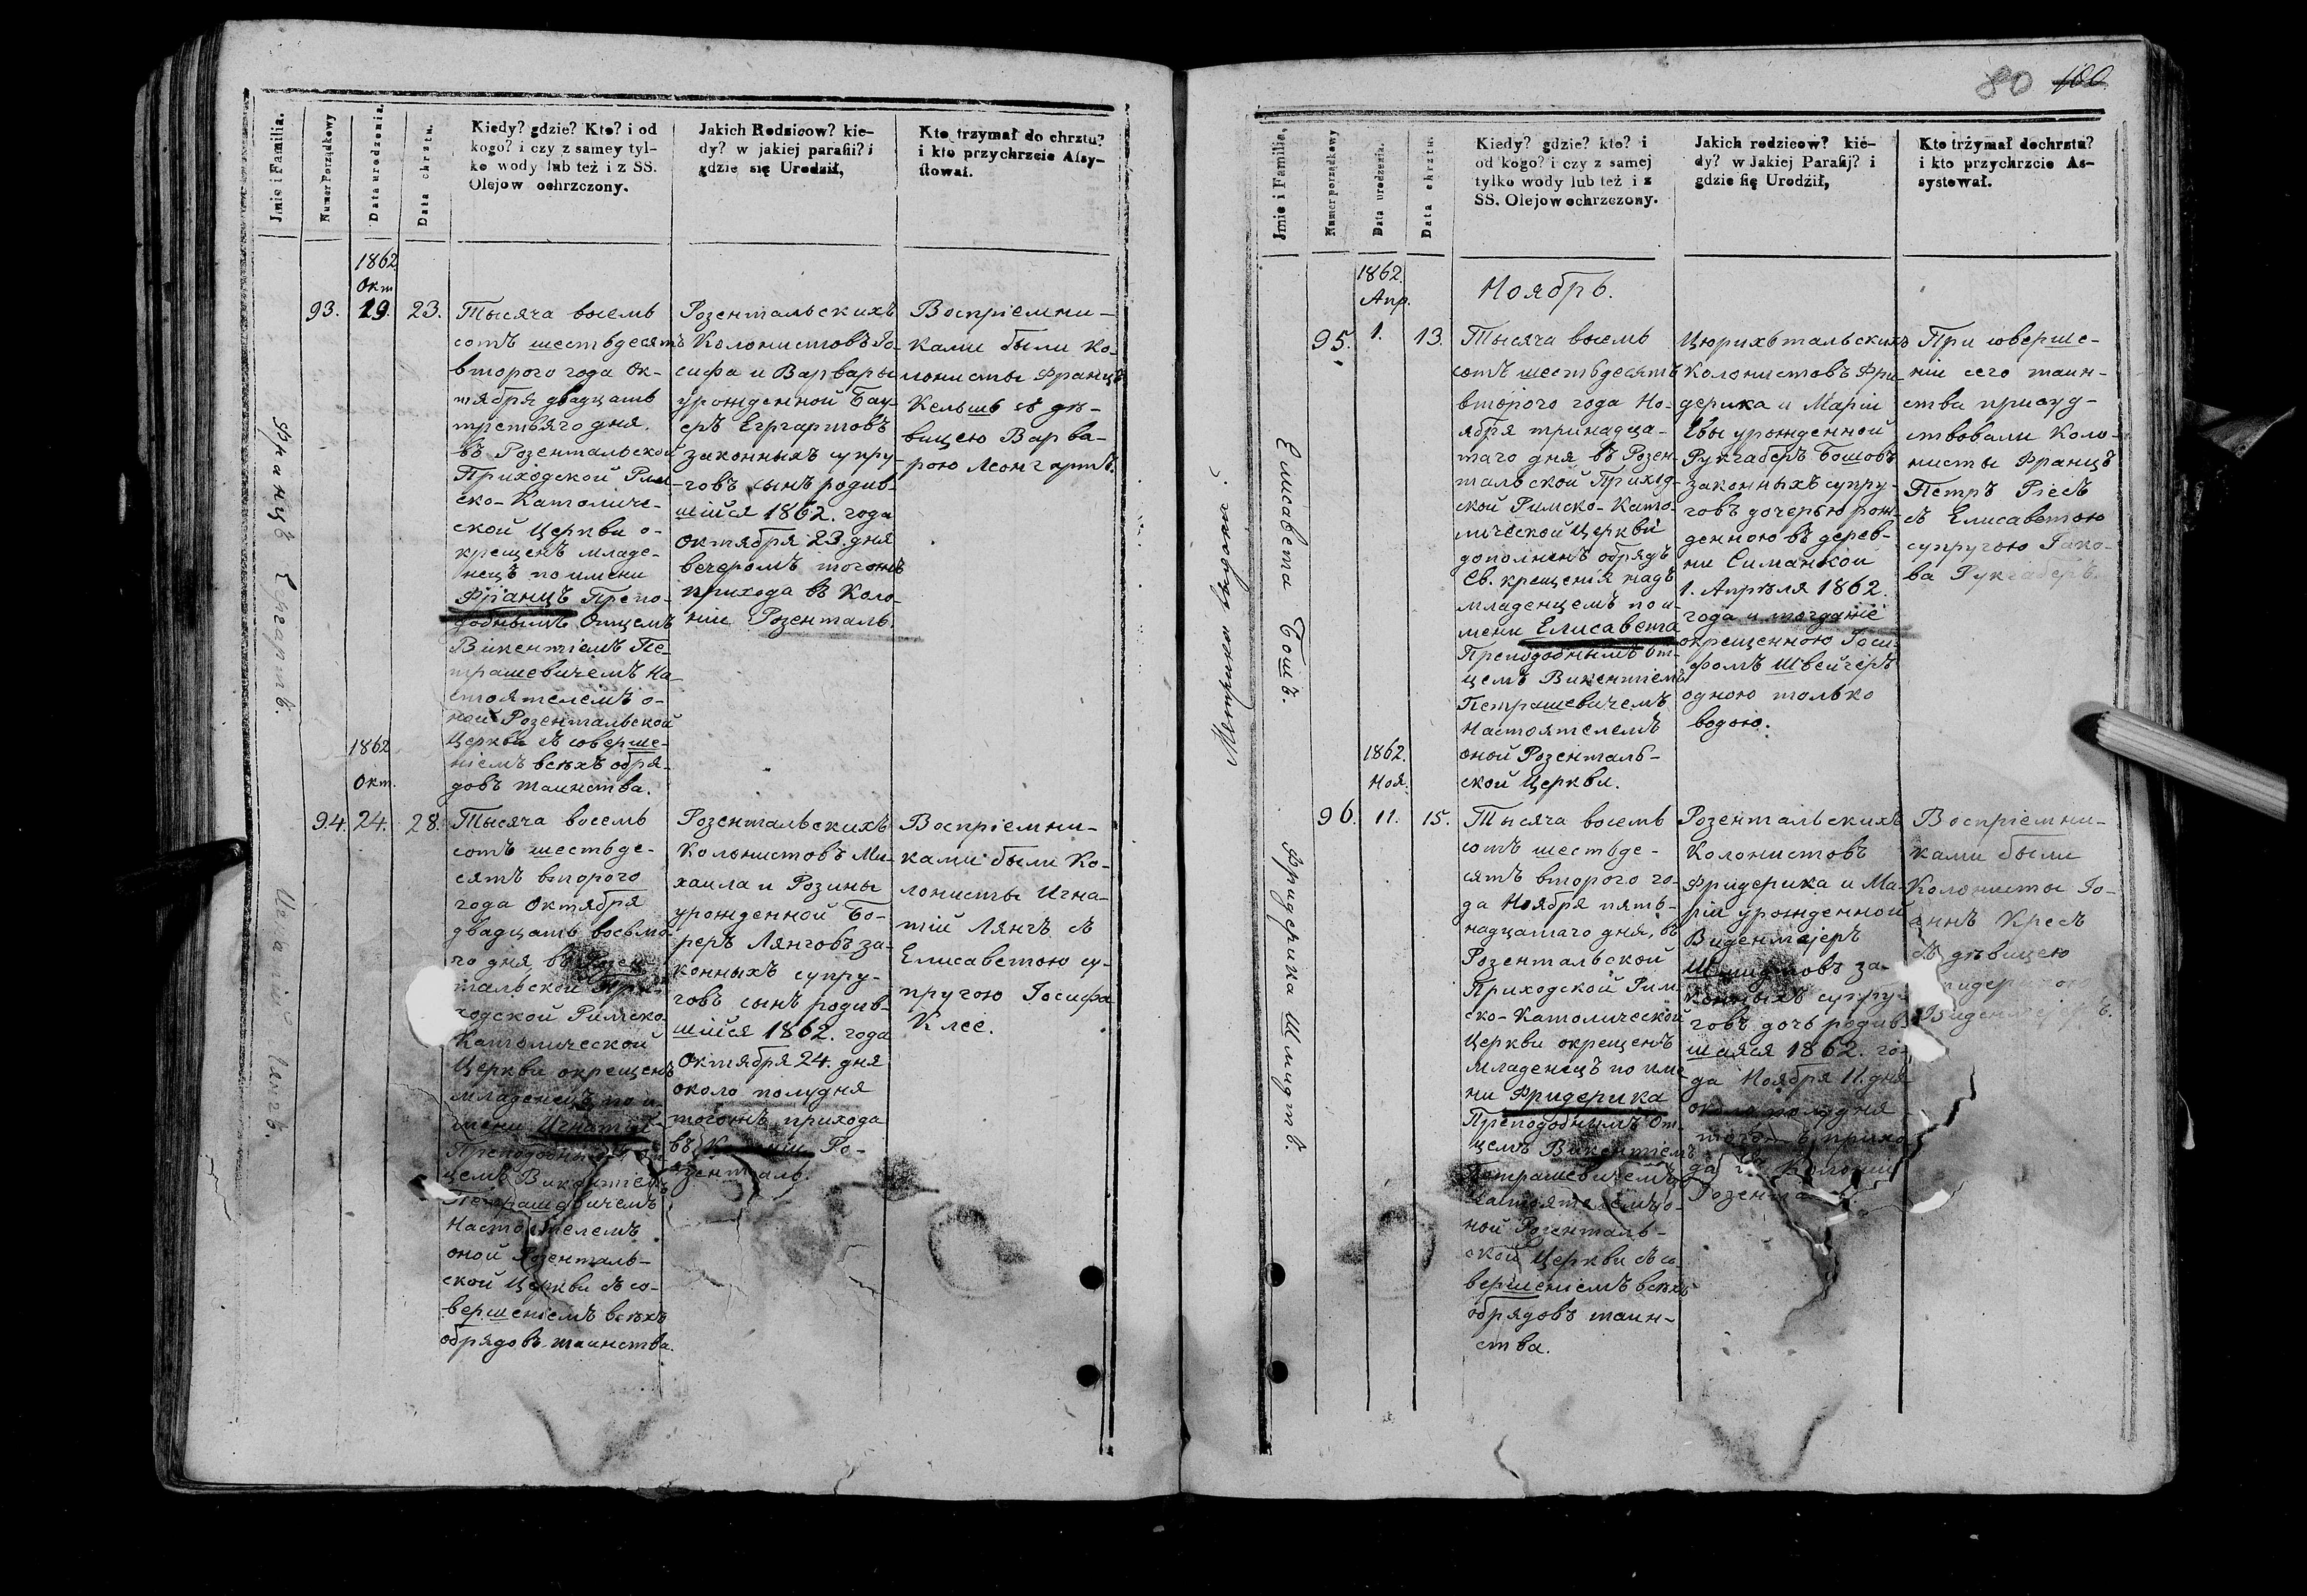 Jmie i Familia.
Numer Porządkowy
Data urodzenia.
Data chrztu.
Kiedy? gdzie? Kto? i od
kogo? i czy z samey tyl-
ko wody lub też i z SS.
Olejow ochrzczony.
Jakich Rodzicow? kie-
dy? w jakiej parafii? i
gdzie się Urodził,
Kto trzymał do chrztu?
i kto przychrzcie Assy-
stował.
Францъ Ергартъ.
1862
Окт
93. 19. 23.
Тысяча восемь
сотъ шестьдесятъ
второго года Ок-
тября двадцать
третьяго дня.
въ Розентальской
Приходской Рим-
ско-Католиче-
ской Церкви о-
крещенъ младе-
нецъ по имени
Францъ Препо-
добнымъ Отцемъ
Викентіемъ Пе-
трашевичемъ На-
стоятелемъ о-
ной Розентальской
Церкви съ соверше-
ніемъ всѣхъ обря-
довъ таинства.
Розентальскихъ
Колонистовъ Іо-
сифа и Варвары
урожденной Бау-
еръ Егргартовъ
законныхъ супру-
говъ сынъ родив-
шійся 1862. года
Октября 23. дня
вечеромъ тогожъ
прихода въ Коло-
ніи Розенталь
Воспріемни-
ками были Ко-
лонисты Францъ
Кельшъ съ дѣ-
вицею Варва-
рою Леонгартъ.
Игнатій Лангъ.
1862
Окт.
94. 24. 28.
Тысяча восемь
сотъ шестьде-
сятъ второго
года Октября
двадцать восьма-
го дня въ Розен-
тальской При-
ходской Римско
Католической
Церкви окрещенъ
младенецъ по и-
мени Игнатій
Преподобнымъ От-
цемъ Викентіемъ
Петрашевичемъ
Настоятелемъ
оной Розенталь-
ской Церкви съ со-
вершеніемъ всѣхъ
обрядовъ таинства.
Розентальскихъ
Колонистовъ Ми-
хаила и Розины
урожденной Бо-
реръ Лянговъ за-
конныхъ супру-
говъ сынъ родив-
шійся 1862. года
Октября 24. дня
около полудня
тогожъ прихода
въ Колоніи Ро-
зенталь.
Воспріемни-
ками были Ко-
лонисты Игна-
тій Лянгъ съ
Елисаветою су-
пругою Іосифа
Клее.
80 100
Jmie i Familia,
Numer porządkowy
Data urodzenia.
Data chrztu.
Kiedy? gdzie? kto? i
od kogo? i czy z samej
tylko wody lub też i z
SS. Olejow ochrzczony.
Jakich rodzicow? kie-
dy? w Jakiej Parafij? i
gdzie się Urodził,
Kto trżymał dochrztu?
i kto przychrzcie As-
systował.
Метрика выдана.
Елисавета Бошъ.
1862.
Апр.
Ноябрь.
95. 1. 13.
Тысяча восемь
сотъ шестьдесятъ
второго года Но-
ября тринадца-
таго дня въ Розен-
тальской Приход-
ской Римско-Като-
лической Церкви
дополненъ обрядъ
Св. крещенія надъ
младенцемъ по и-
мени Елисавета
Преподобнымъ От-
цемъ Викентіемъ
Петрашевичемъ
Настоятелемъ
оной Розенталь-
ской Церкви.
Цюрихтальскихъ
Колонистовъ Фри-
дерика и Маріи
Евы урожденной
Рукгаберъ Бошовъ
законныхъ супру-
говъ дочерью рож-
денною въ дерев-
ни Симанкои
1. Апрѣля 1862.
года и тогдаже
окрещенною Іоси-
фомъ Швейчеръ
одною только
водою.
При соверше-
ніи сего таин-
ства присуд-
ствовали Коло-
нисты Францъ
Петръ Ріесъ
съ Елисаветою
супругою Іако-
ва Рукгаберъ.
Фридерика Шмидтъ.
1862.
Ноя.
96. 11. 15.
Тысяча восемь
сотъ шестьде-
сятъ второго го-
да Ноября пять-
надцатаго дня, въ
Розентальской
Приходской Рим-
ско-Католической
Церкви окрещенъ
младенецъ по име-
ни Фридерика
Преподобнымъ От-
цемъ Викентіемъ
Петрашевичемъ
Настоятелемъ о-
ной Розенталь-
ской Церкви съ со-
вершеніемъ всѣхъ
обрядовъ таин-
ства.
Розентальскихъ
Колонистовъ
Фридерика и Ма-
ріи урожденной
Виденмајеръ
Шмидтовъ за-
конныхъ супру-
говъ дочь родив-
шаяся 1862. го-
да Ноября 11. дня
около полудня
тогожъ прихо-
да въ Колоніи
Розента
Воспріемни-
ками были
Колонисты Іо-
аннъ Кресъ
съ дѣвицею
Фридерикою
Виденмајеръ.